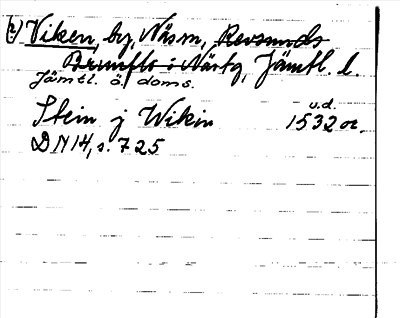 2) Viken, by, Näsm, Revsunds
Brunflo i Närtg, Jämtl. l.
Jämtl. ö. doms.
Stein j Wikin u.d. 1532 or.
DN 14, s. 725